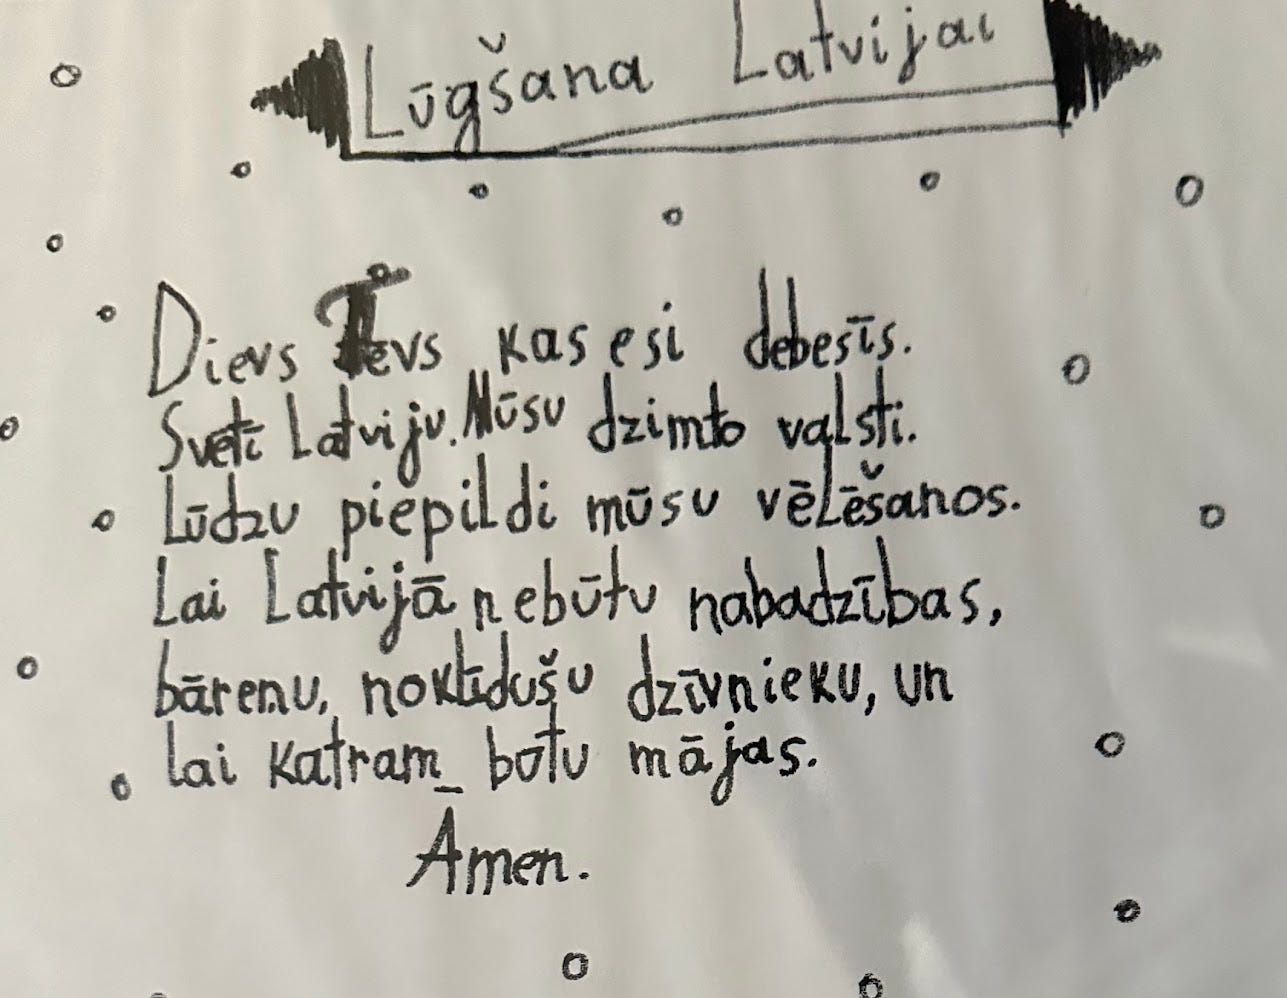 Lūgšana Latvijai
Dievs Tēvs kas esi debesīs.
Svētī Latviju. Mūsu dzimto valsti.
Lūdzu piepildi mūsu vēlēšanos.
Lai Latvijā nebūtu nabadzības,
bāreņu, noklīdušu dzīvnieku, un
lai katram būtu mājas.
Āmen.